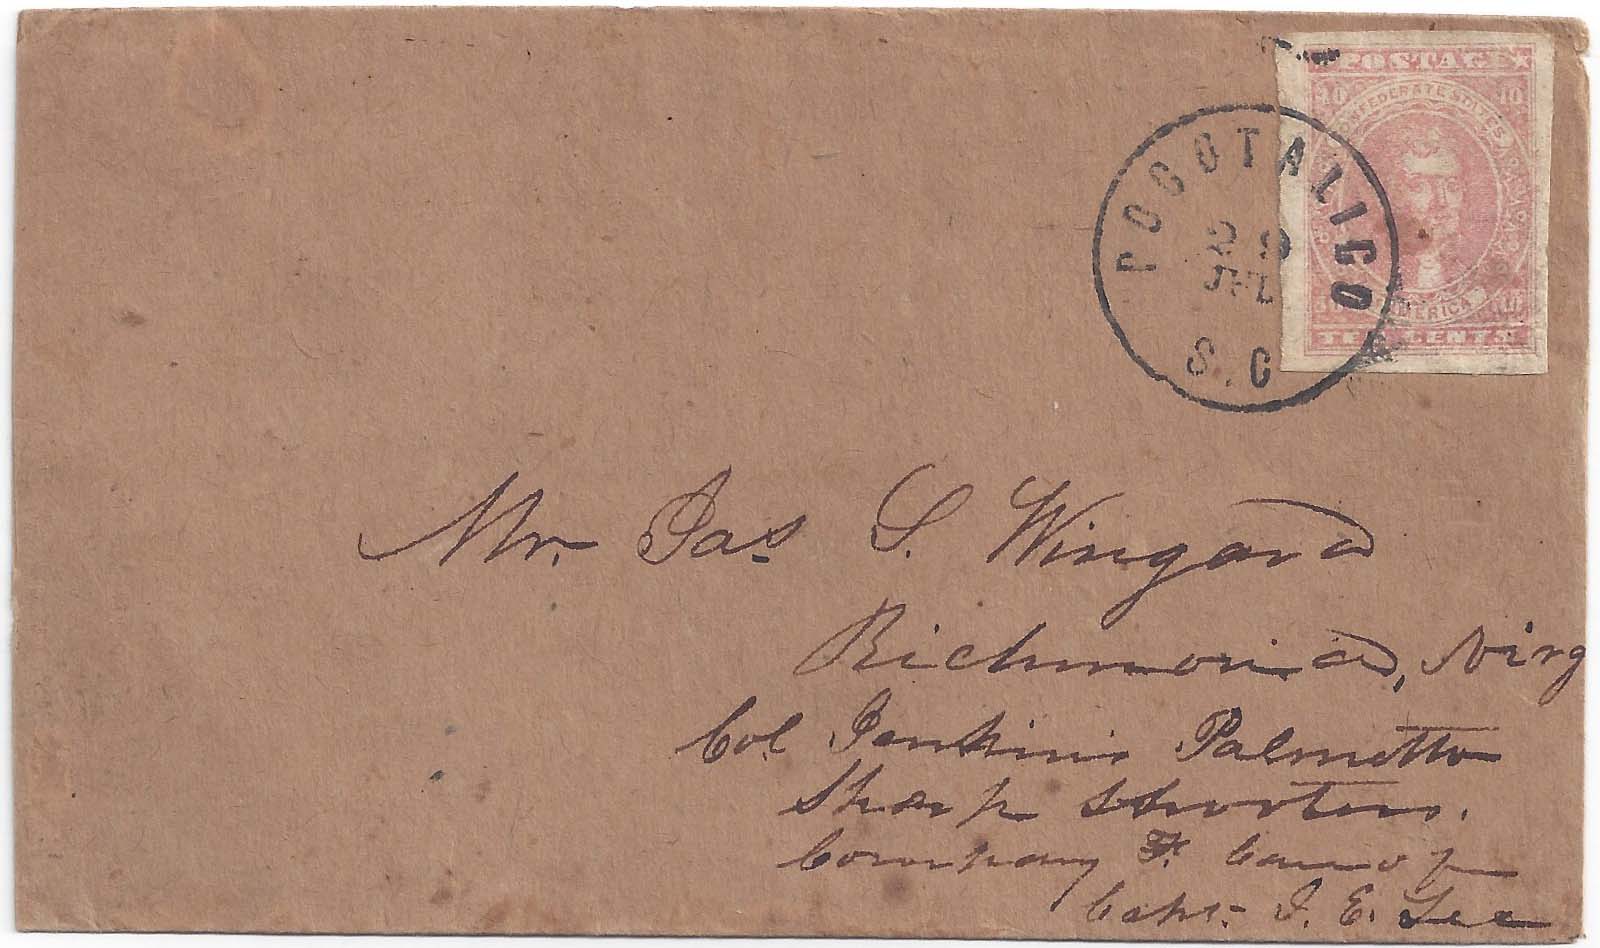 POSTAGE
10 10
CONFEDERATE STATES
AMERICA
TEN CENTS
POCOTALIGO
29
JUL
S.C
Mr. Jas. S. Wingard
Richmond, Virg
Col Jenkins Palmetto
Sharp Shooters.
Company F.
Capt. J. E. Lee